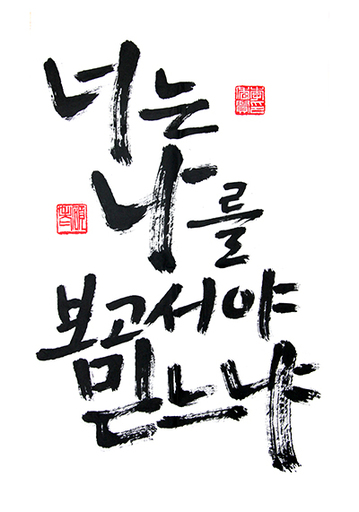 너는
나를
보고서야
믿느냐